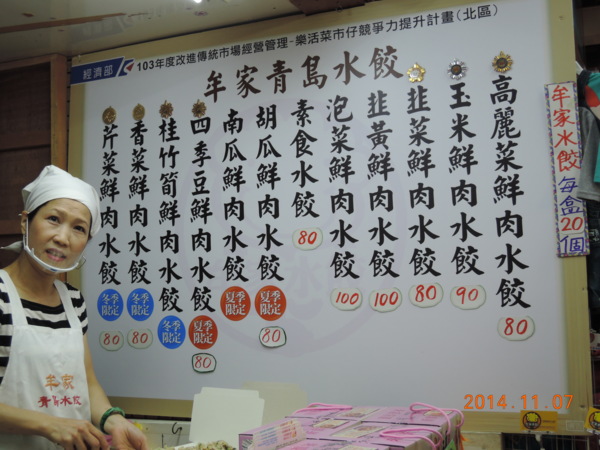 經濟部 103年度改進傳統市場經營管理-樂活菜市仔競爭力提升計畫(北區)
牟家青島水餃
高麗菜鮮肉水餃 80
玉米鮮肉水餃 90
韭菜鮮肉水餃 80
韭黃鮮肉水餃 100
泡菜鮮肉水餃 100
素食水餃 80
胡瓜鮮肉水餃 夏季限定 80
南瓜鮮肉水餃 夏季限定
四季豆鮮肉水餃 夏季限定 80
桂竹筍鮮肉水餃 冬季限定
香菜鮮肉水餃 冬季限定 80
芹菜鮮肉水餃 冬季限定 80
牟家水餃每盒20個
牟家
青島水餃
2014.11.07